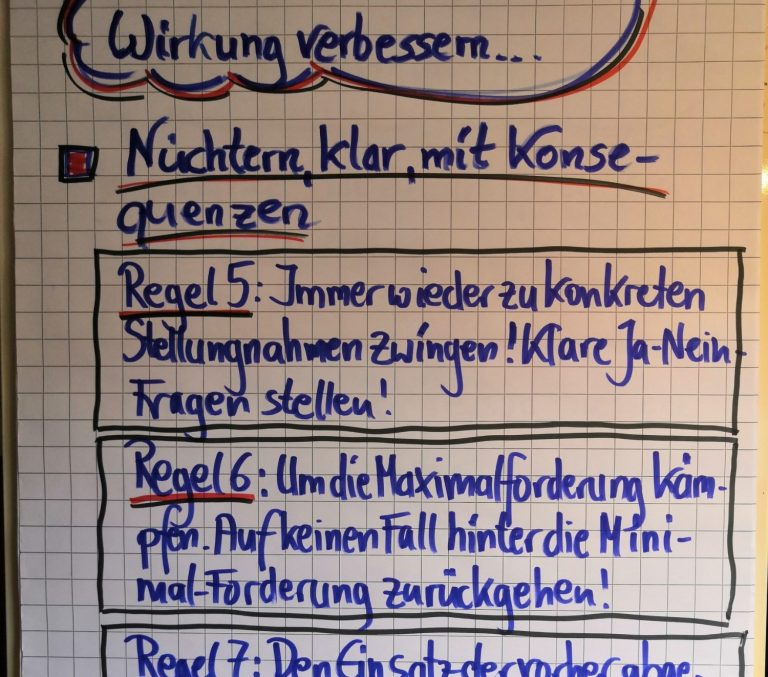 Wirkung verbessern...
Nüchtern, klar, mit Konse-
quenzen
Regel 5: Immer wieder zu konkreten
Stellungnahmen zwingen! Klare Ja-Nein-
Fragen stellen!
Regel 6: Um die Maximalforderung käm-
pfen. Auf keinen Fall hinter die Mini-
mal-Forderung zurückgehen!
Regel 7: Den Einsatz der vorher abge-